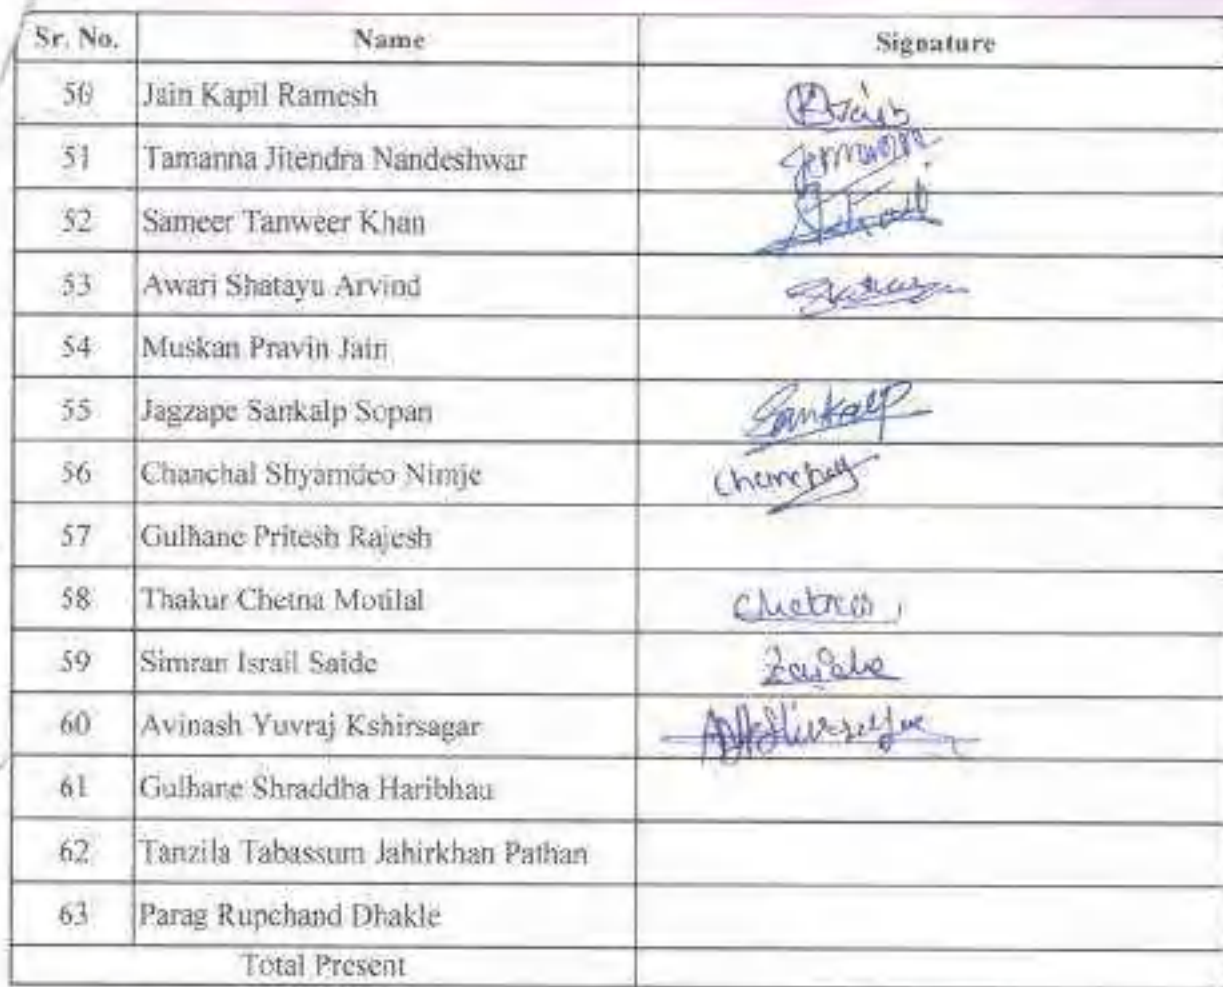 Sr. No. Name Signature
50 Jain Kapil Ramesh
51 Tamanna Jitendra Nandeshwar
52 Sameer Tanweer Khan
53 Awari Shatayu Arvind
54 Muskan Pravin Jain
55 Jagzape Sankalp Sopan Sankalp
56 Chanchal Shyamdeo Nimje
57 Gulhane Pritesh Rajesh
58 Thakur Chetna Motilal
59 Simran Israil Saide
60 Avinash Yuvraj Kshirsagar
61 Gulhane Shraddha Haribhau
62 Tanzila Tabassum Jahirkhan Pathan
63 Parag Rupchand Dhakle
Total Present